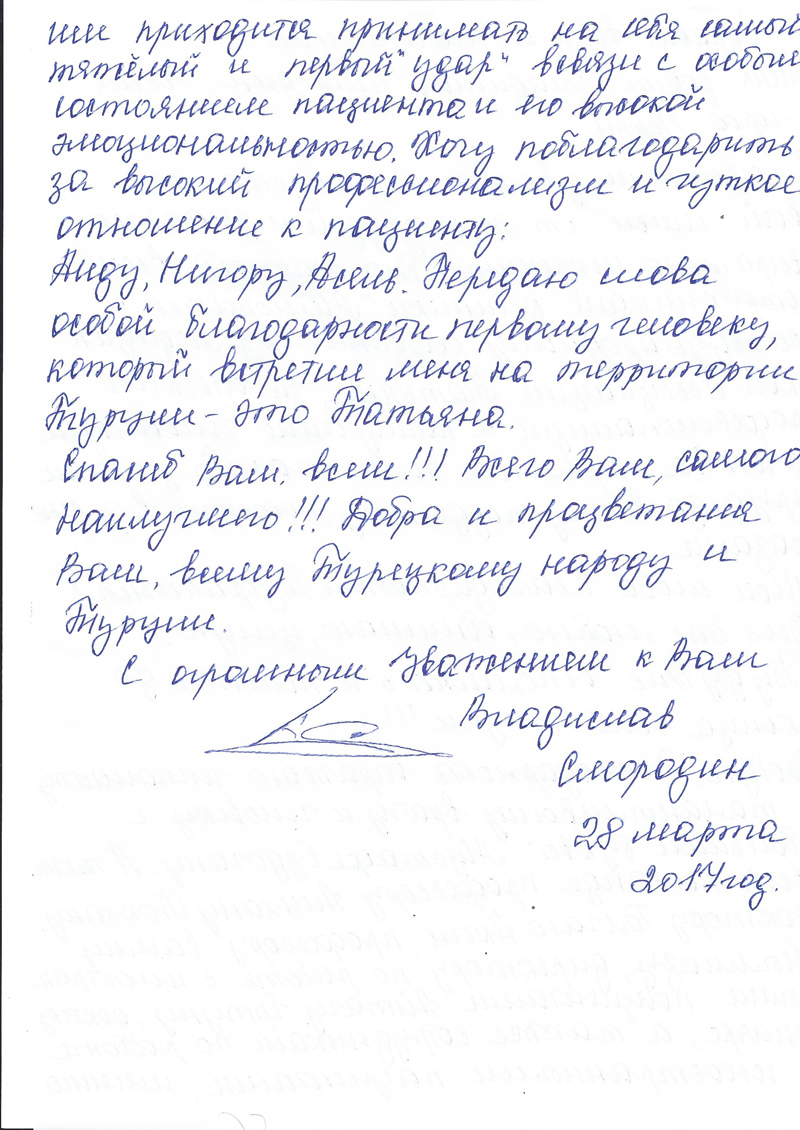 им приходится принимать на себя самый
тяжёлый и первый "удар" всвязи с особым
состоянием пациента и его высокой
эмоциональностью. Хочу поблагодарить
за высокий профессионализм и чуткое
отношение к пациенту:
Аиду, Нигору, Асель. Передаю слова
особой благодарности первому человеку,
который встретил меня на территории
Турции - это Татьяна.
Спасиб Вам, всем!!! Всего Вам, самого
наилучшего!!! Добра и процветания
Вам, всему Турецкому народу и
Турции.
С огромным уважением к Вам
Владислав
Смородин
28 марта
2017 год.